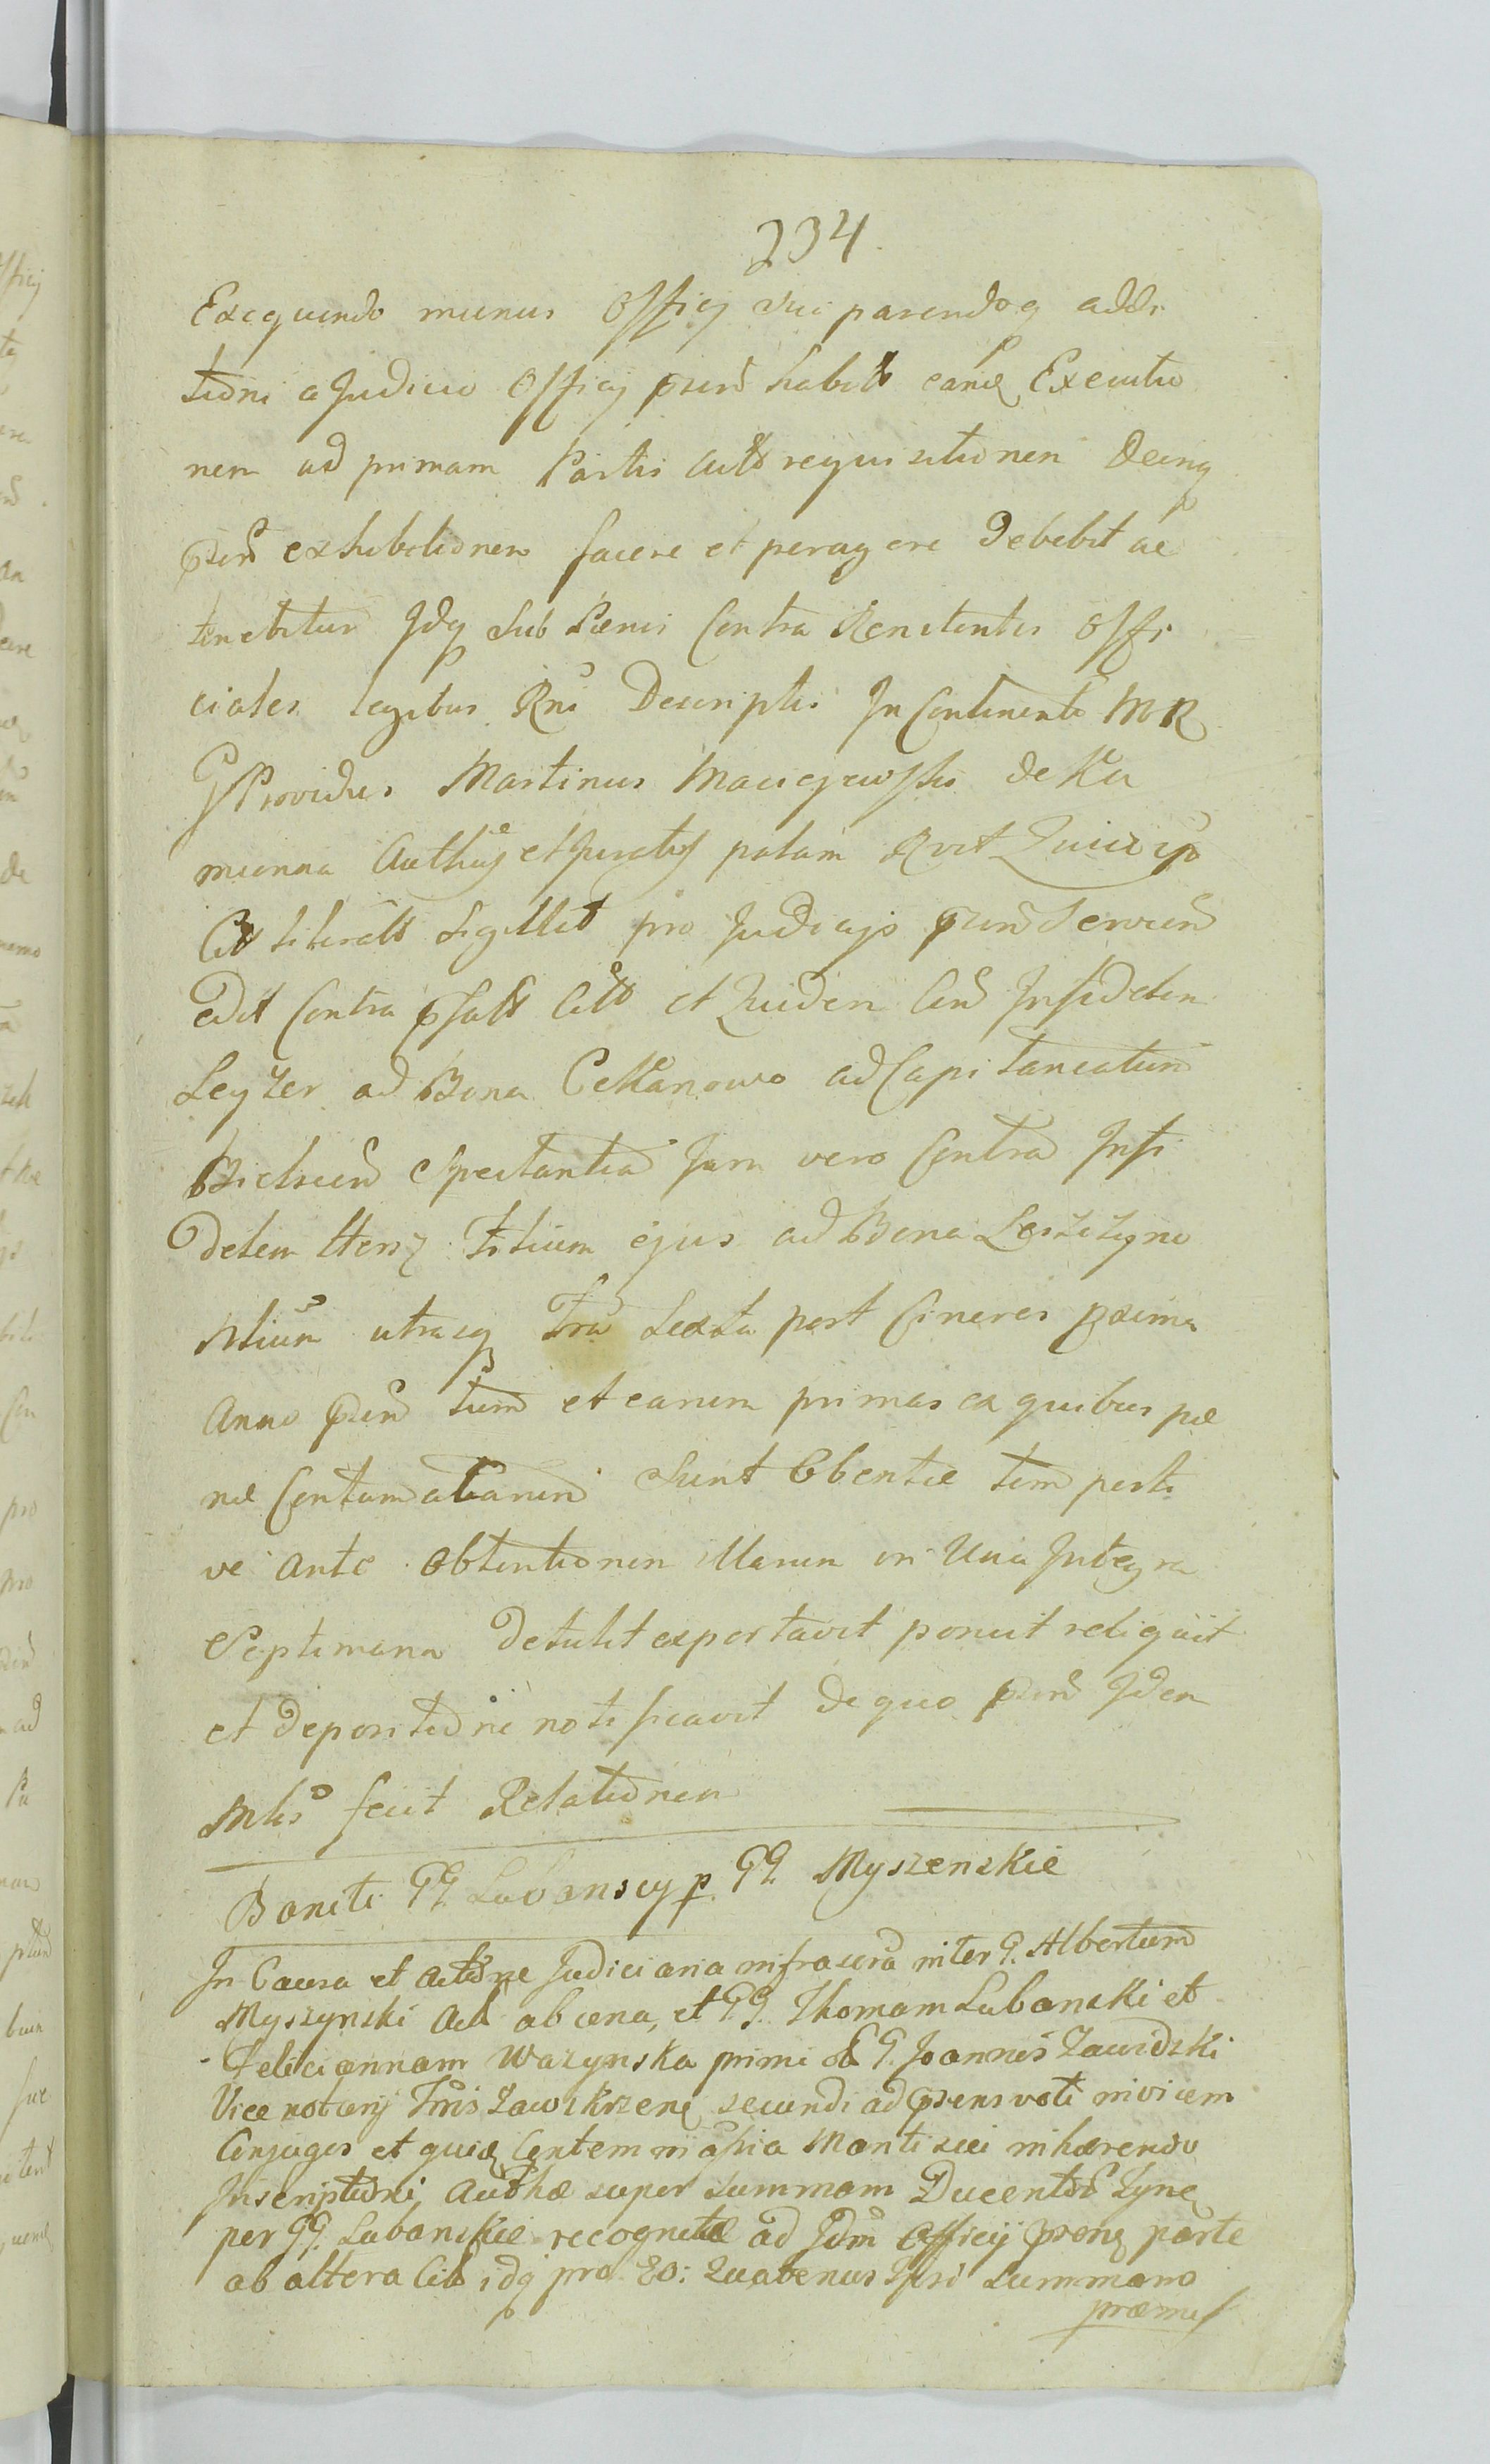 234
Exequendo munus Officij sui parendoq addi
tioni a Judicio Officij psend habitt eamq Executio
nem ad primam Partis Citt requisitionem Deinq
psend exhibitionem facere et peragere Debebit ac
tenebitur Jdq sub Penis Contra Renitentes Offi
ciales legibus Rni Descriptis In Continenti MR
Providus Martinus Maciejewski de Ka
mienna Authus et Juratus palam Rvit Quia ip
Citt literales Sigillat pro Judicijo psend Serviend
edit Contra psatt Citt et quidem Cend Infidelem
Leyzer ad Bona Cekanowo ad Capitaneatum
Bielscend Spectantia Jam vero Contra Infi
delem Hersz Filium ejus ad Bona
utrasq Fria Sexta post Cineres pxima
Anno psend tum et earum primas ex quibus pae
nae Contumatiarum Sunt Obentae tempesti
ve ante Obtentionem illarum in Una Integra
Septimana Detulit exportavit posuit reliquit
et Depositioni notificavit de quo psend Jdem
Mlis fecit Relationem
Baniti GG Lubanscy p. GG. Myszenskie
In Causa et Actione Judiciaria infrascrd inter G. Albertum
Myszynski Act ab una, et GG. Thomam Lubanski et
Feliciannam Wazynska primi G. Joannis Zawidzki
Vice notarij Trris Zawskrzens secundi ad psens voti invicem
Conjuges et quidq Contem Mantisei inhaerendo
Inscriptioni Authae super summam Ducentor Zyne
per GG. Lubanskie recognitae ad Jdm Officij psens parte
ab altera Citt idq pro Eo: Quatenus Ipsi summam
praemis